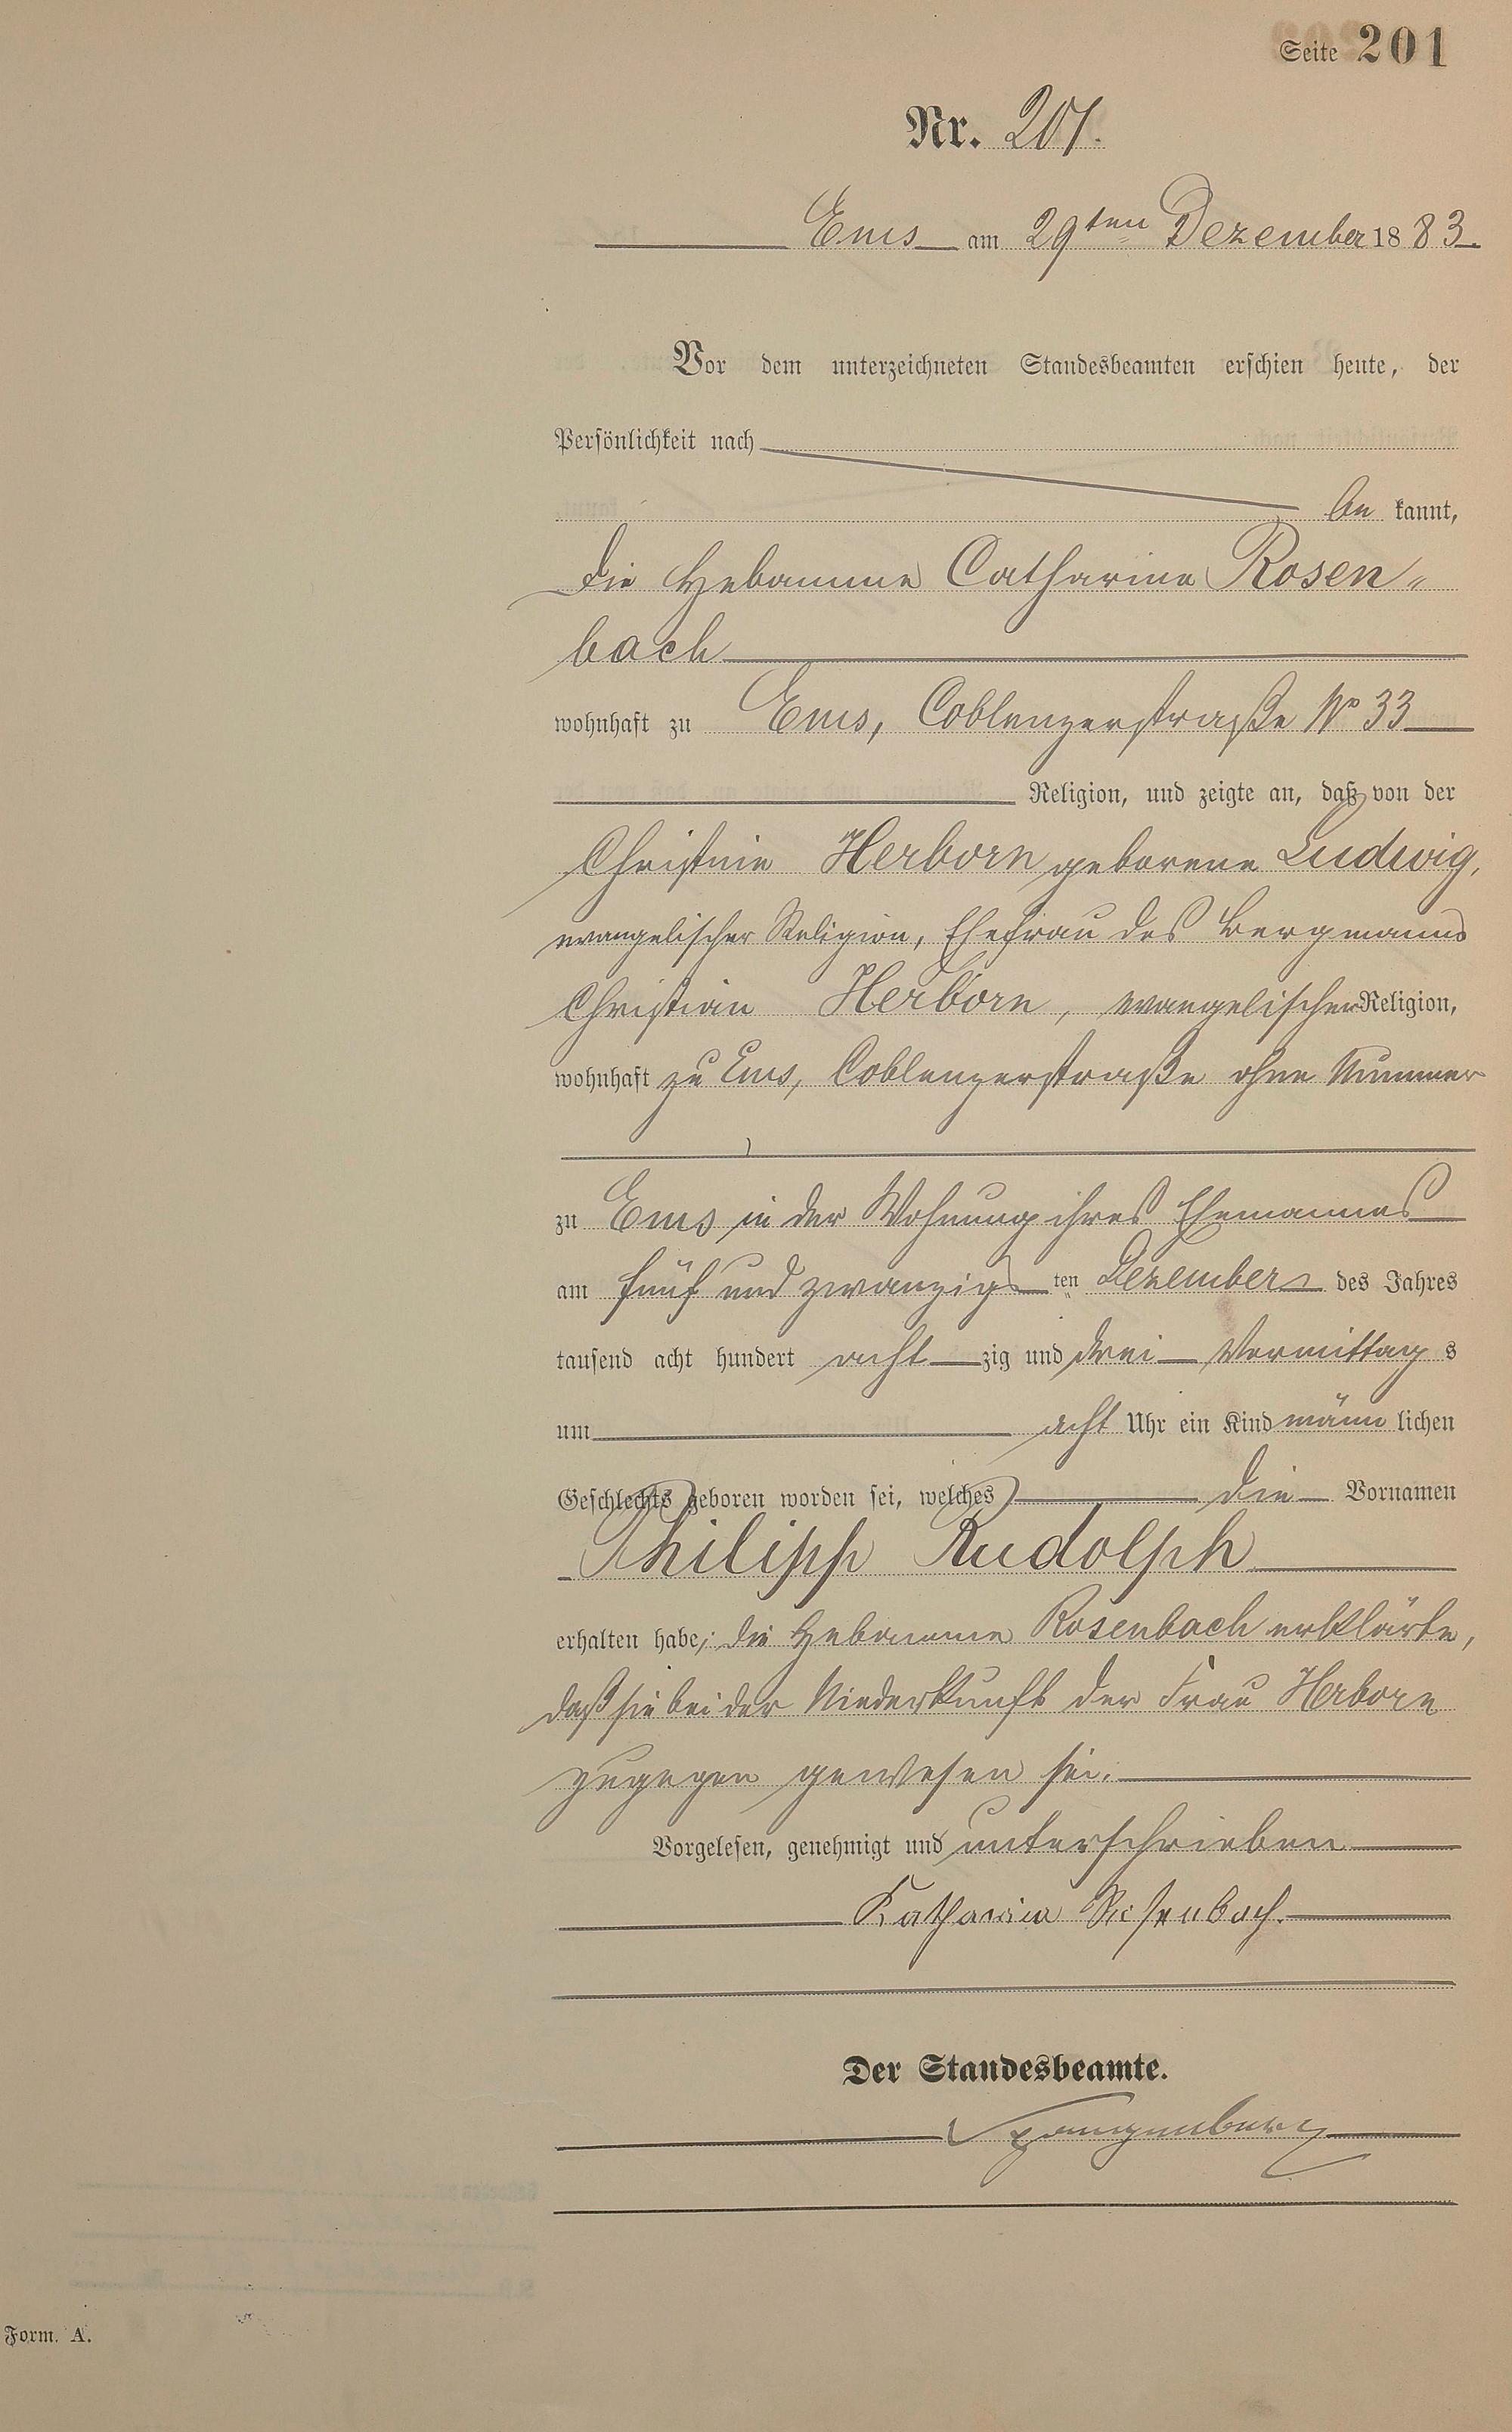 Seite 201
Nr. 201.
Ems am 29ten Dezember 1883.
Vor dem unterzeichneten Standesbeamten erschien heute, der
Persönlichkeit nach
be kannt,
die Hebamme Catharina Rosen„
bach
wohnhaft zu Ems, Coblenzerstraße No 33
Religion, und zeigte an, daß von der
Christine Herborn geborene Ludwig,
evangelischer Religion, Ehefrau des Bergmanns
Christian Herborn, evangelischer Religion,
wohnhaft zu Ems, Coblenzerstraße ohne Nummer
zu Ems in der Wohnung ihres Ehemannes
am fünf und zwanzigs ten Dezember des Jahres
tausend acht hundert acht zig und drei Vormittag s
um acht Uhr ein Kind männ lichen
Geschlechts geboren worden sei, welches die Vornamen
Philipp Rudolph
erhalten habe; die Hebamme Rosenbach erklärte,
daß sie bei der Niederkunft der Frau Herborn
zugegen gewesen sei.
Vorgelesen, genehmigt und unterschrieben
Katharina Rosenbach.
Der Standesbeamte.
Spangenberg
Form. A.